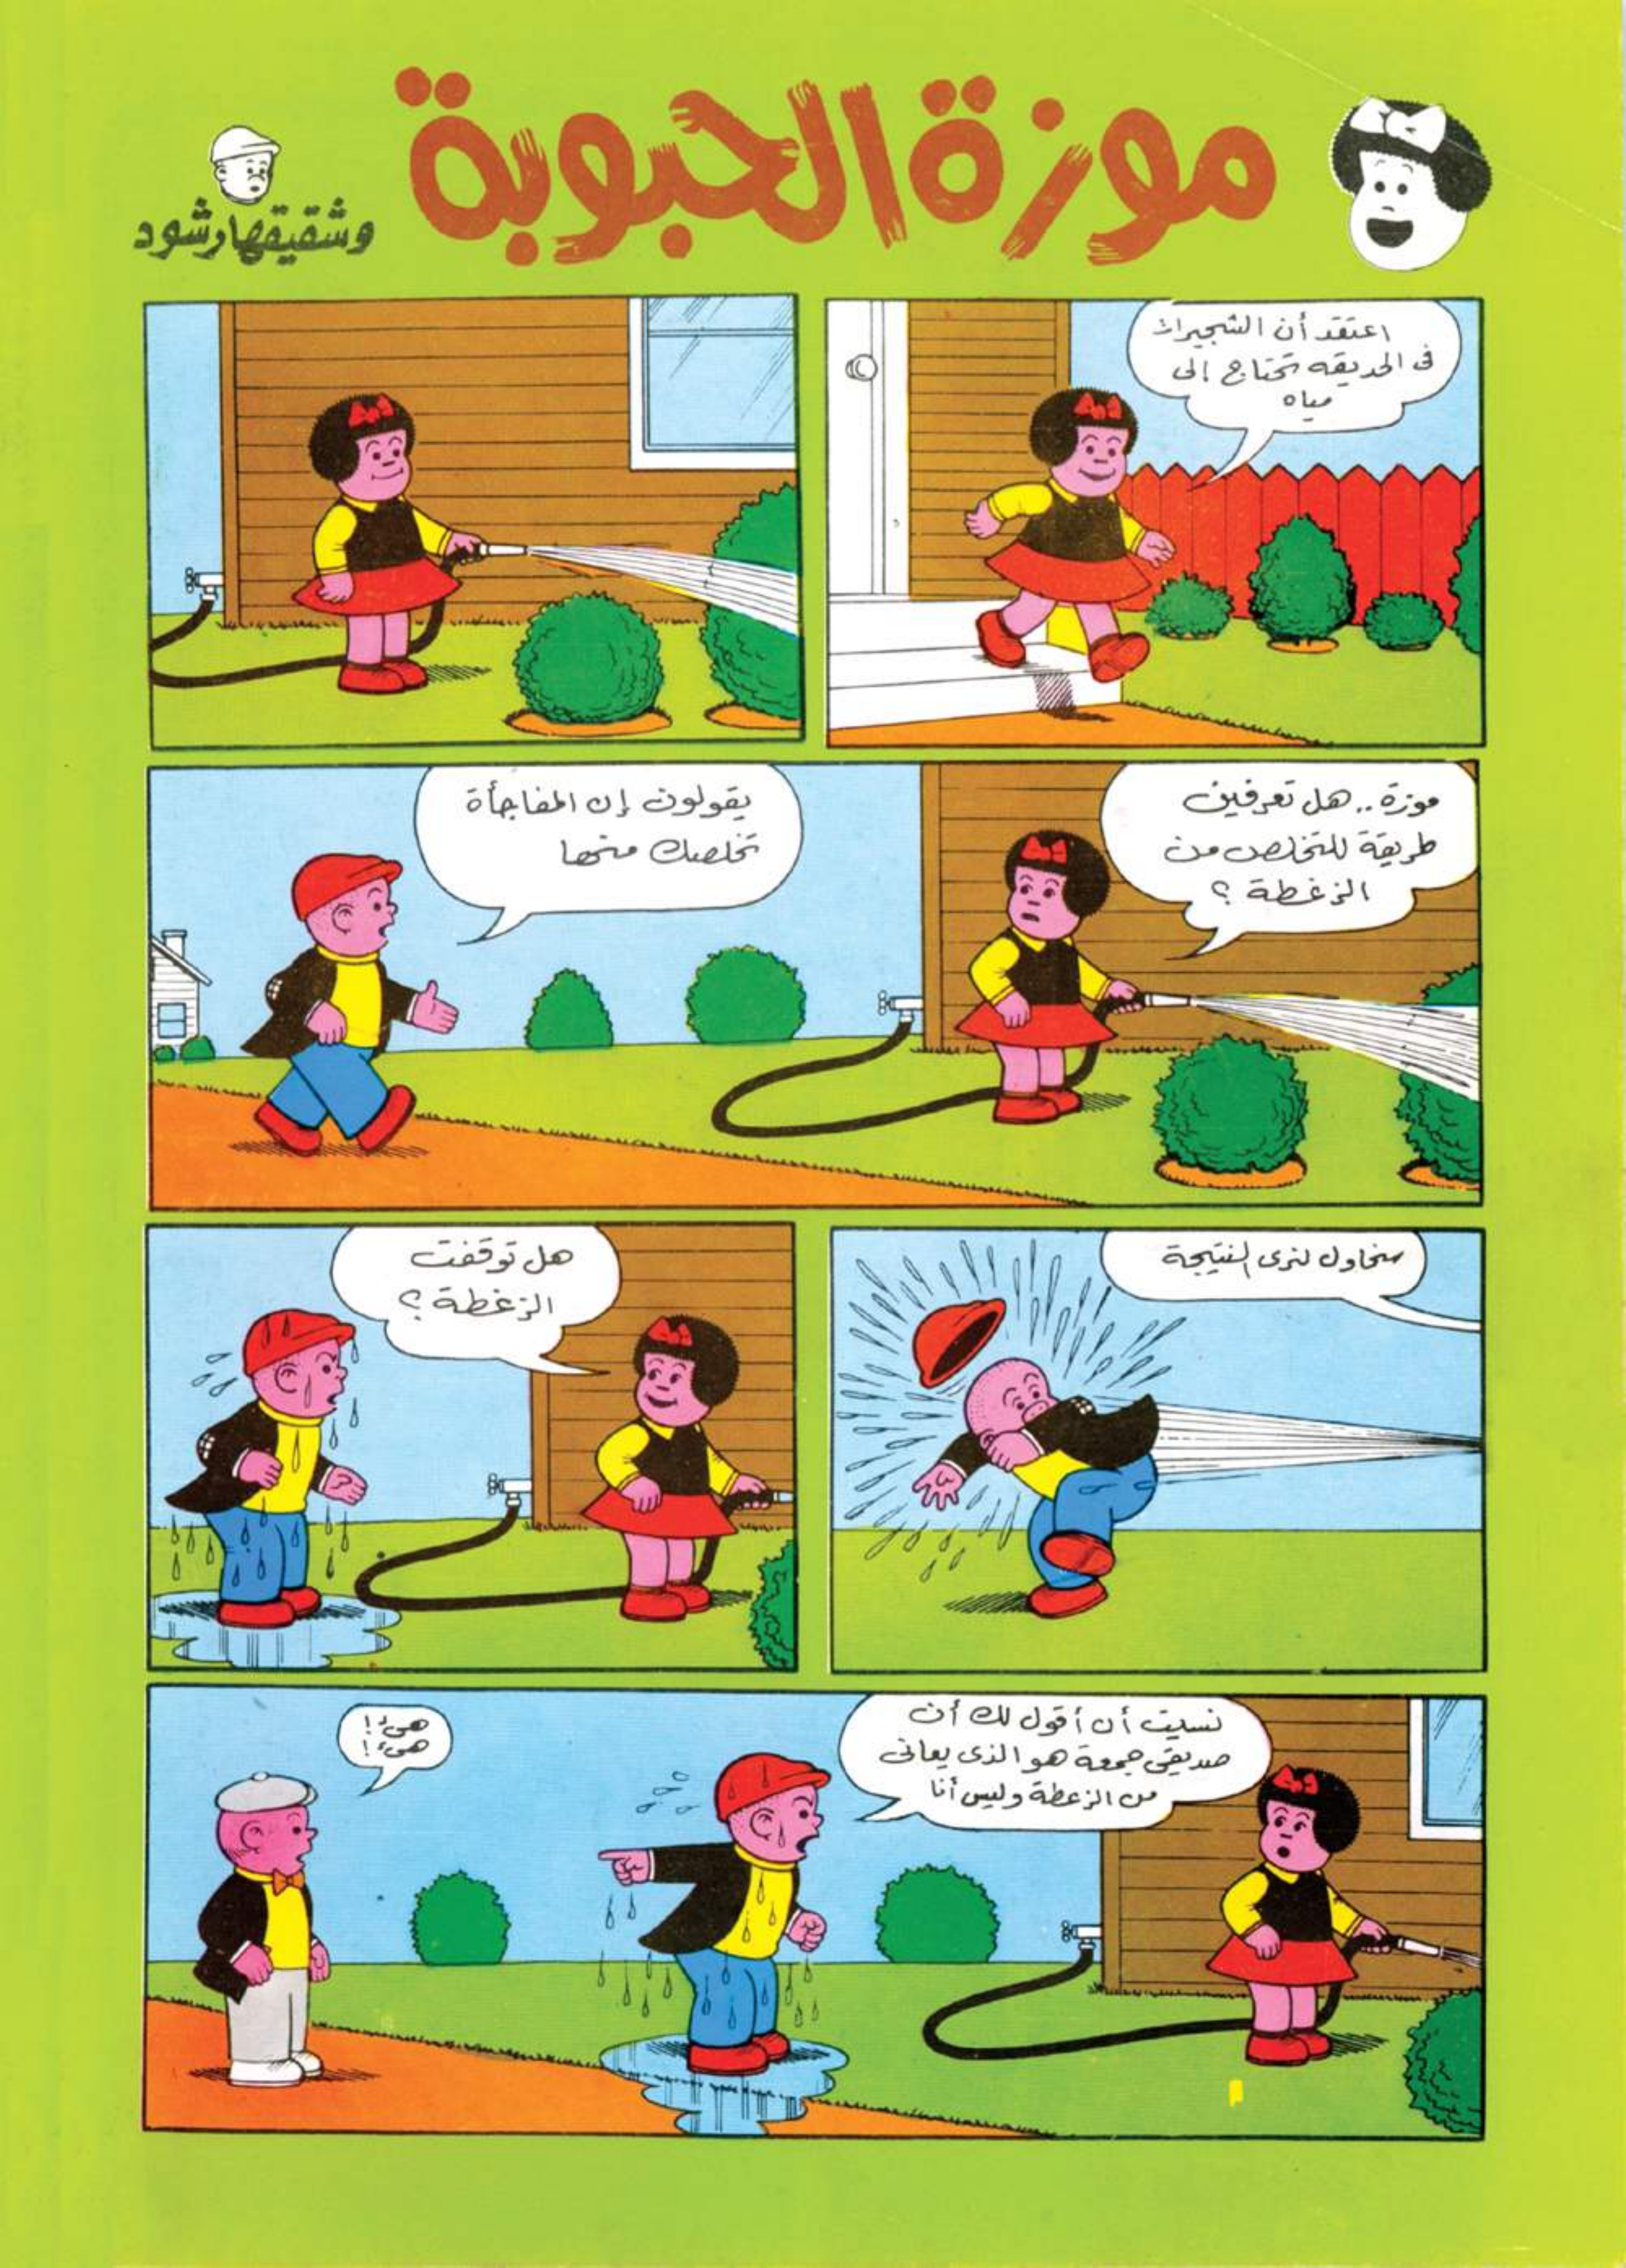 موزة الحبوبة
وشقيقها رشود
اعتقد أن الشجيرات
فى الحديقه تحتاج إلى
مياه
موزة .. هل تعرفين
طريقة للتخلص من
الزغطة ؟
يقولون إن المفاجأة
تخلصك منها
سنحاول لنرى النتيجة
هل توقفت
الزغطة ؟
نسيت أن أقول لك أن
صديقى جمعة هو الذى يعانى
من الزغطة وليس أنا
هىء !
هىء !